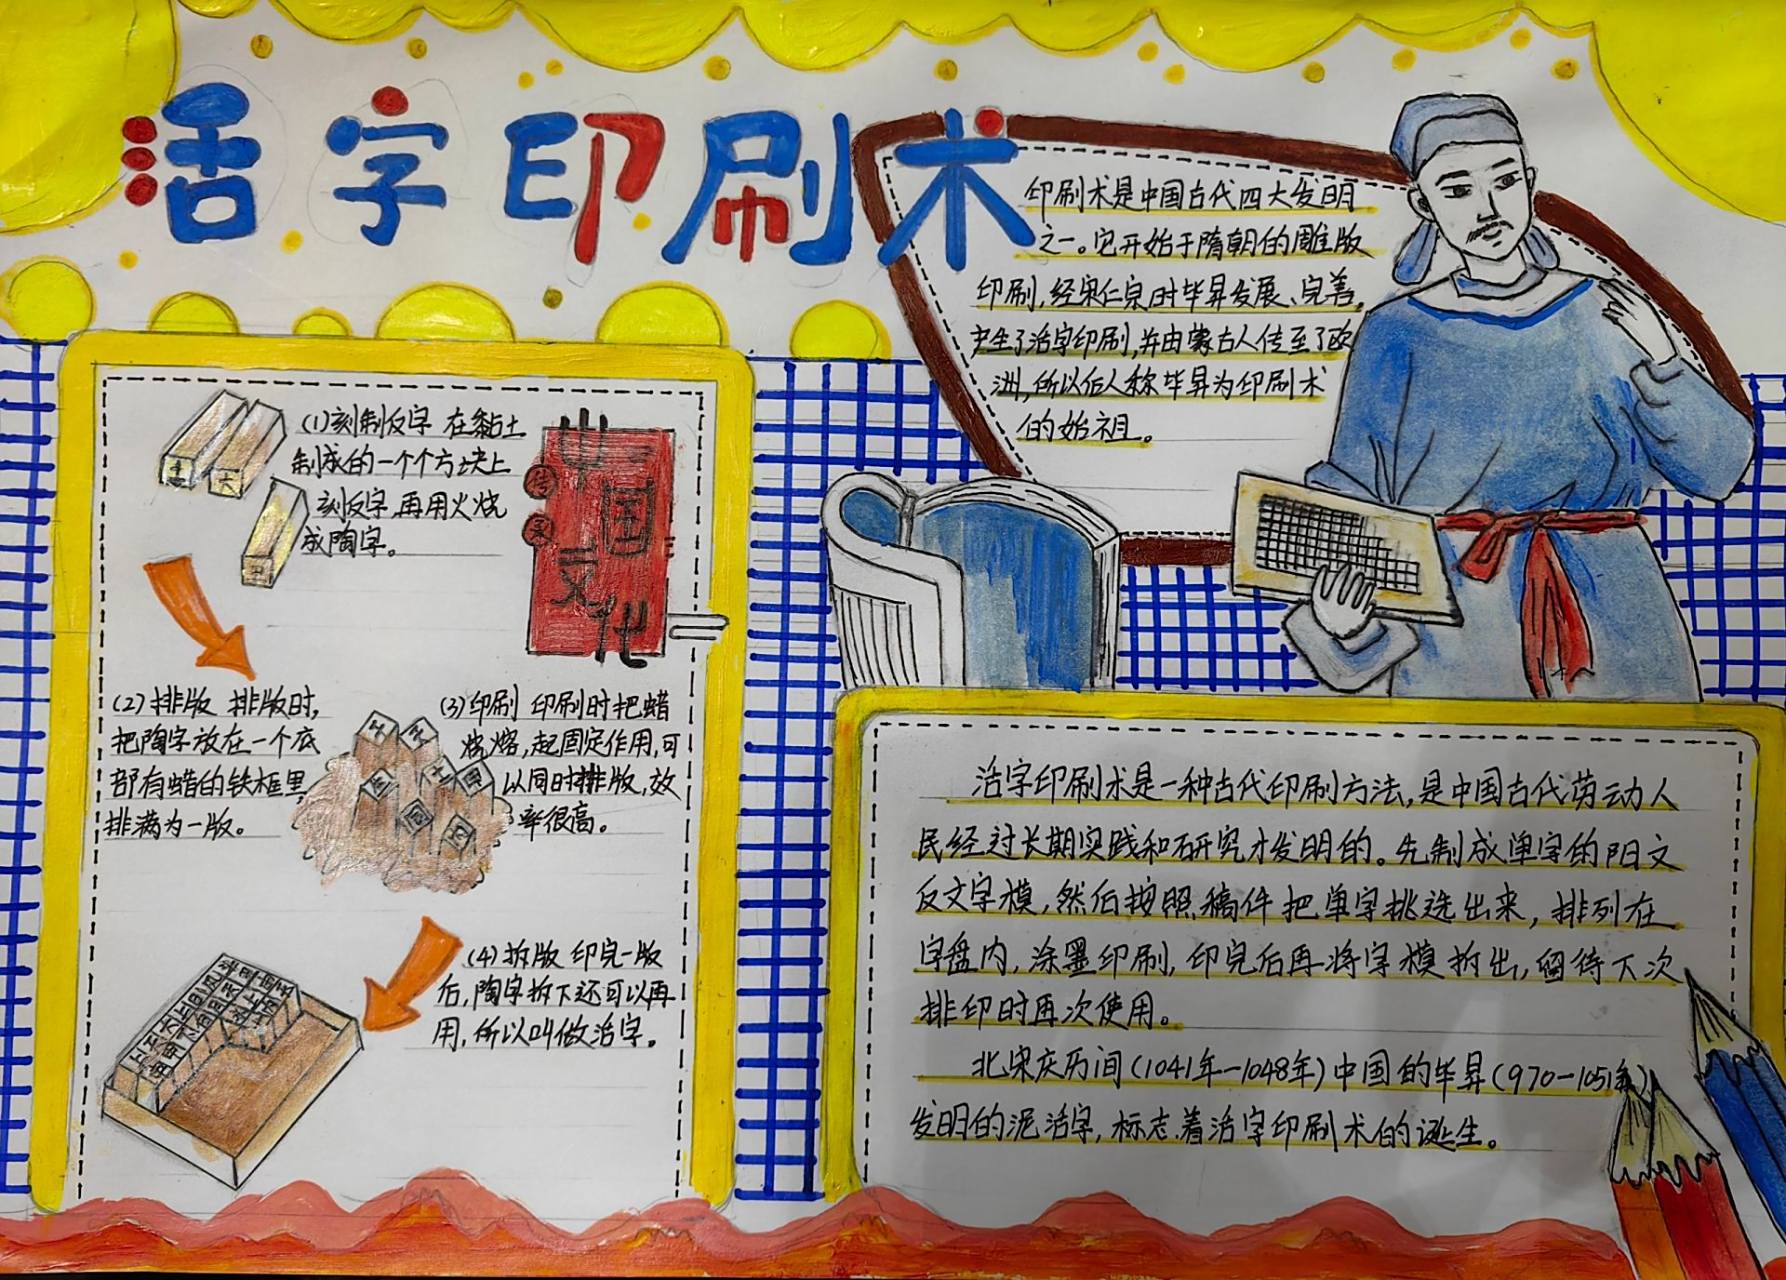 活字印刷术
印刷术是中国古代四大发明
之一。它开始于隋朝的雕版
印刷,经宋仁宗时毕昇发展、完善,
产生了活字印刷,并由蒙古人传至了欧
洲,所以后人称毕昇为印刷术
的始祖。
(1)刻制反字 在黏土
制成的一个个方块上
刻反字,再用火烧
成陶字。
中国文化
传承
(2)排版 排版时,
把陶字放在一个底
部有蜡的铁框里,
排满为一版。
(3)印刷 印刷时把蜡
烧熔,起固定作用,可
以同时排版,效
率很高。
(4)拆版 印完一版
后,陶字拆下还可以再
用,所以叫做活字。
活字印刷术是一种古代印刷方法,是中国古代劳动人
民经过长期实践和研究才发明的。先制成单字的阳文
反文字模,然后按照稿件把单字挑选出来,排列在
字盘内,涂墨印刷,印完后再将字模拆出,留待下次
排印时再次使用。
北宋庆历间(1041年-1048年)中国的毕昇(970-1051年)
发明的泥活字,标志着活字印刷术的诞生。